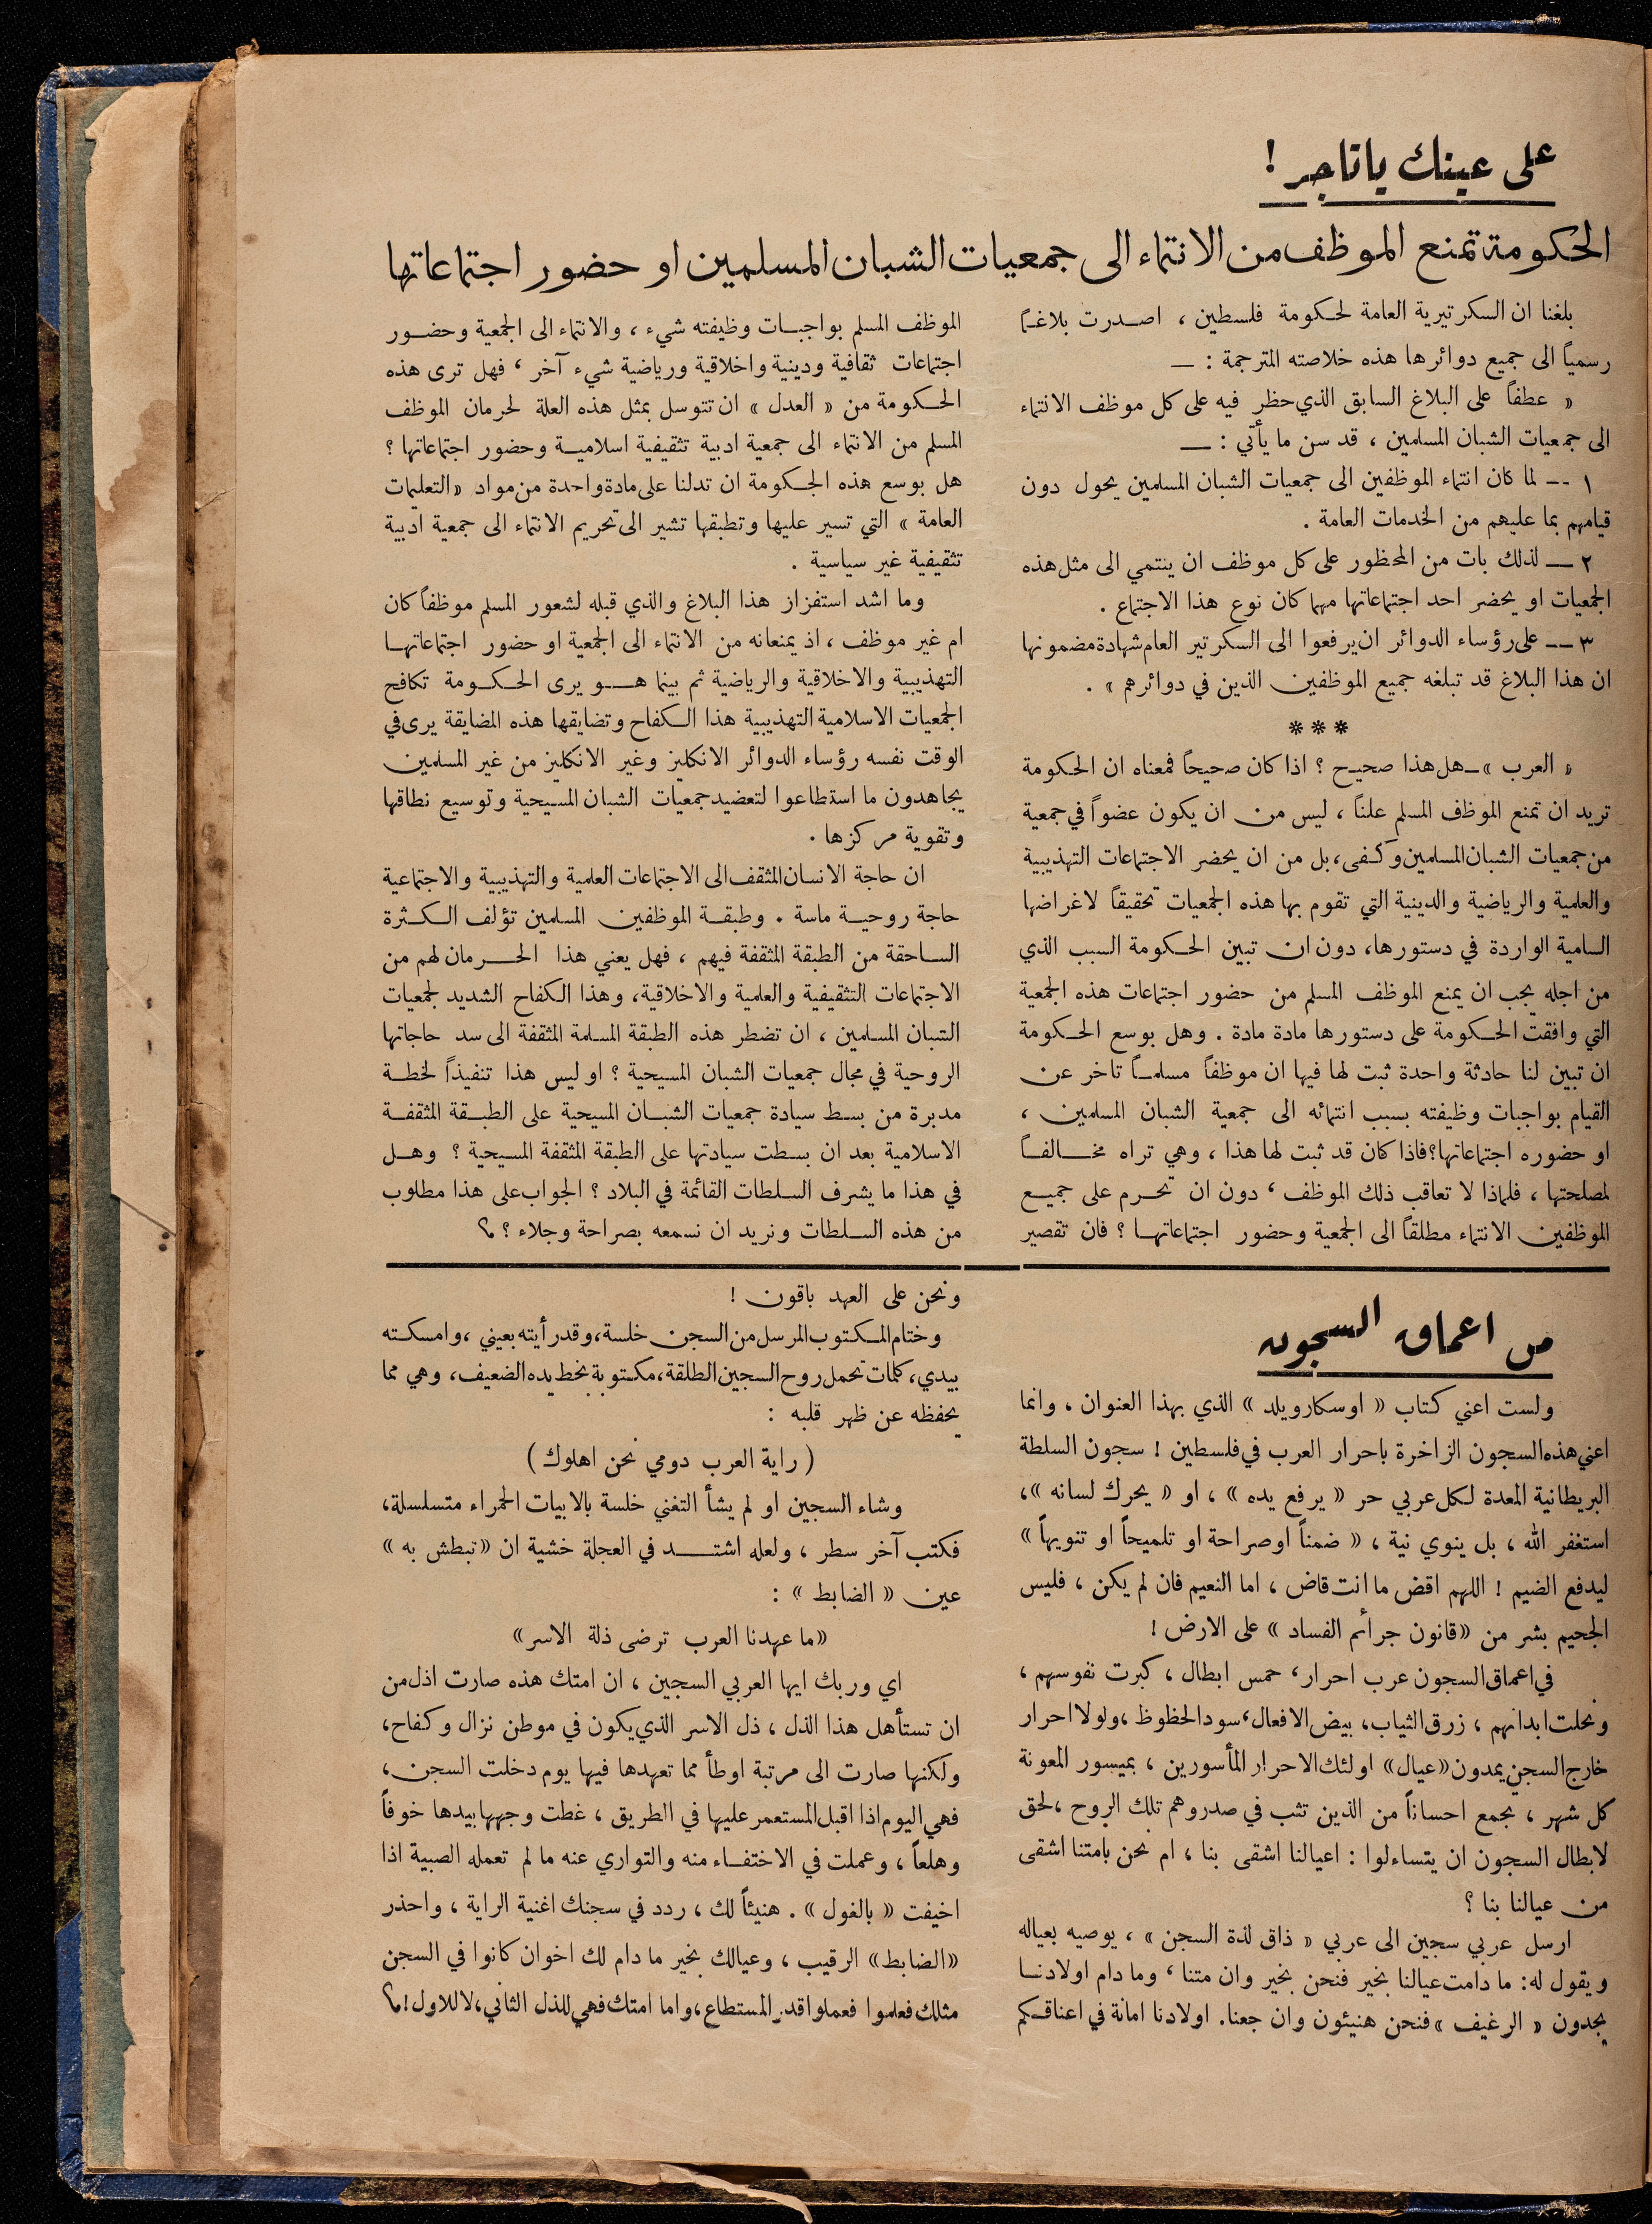 على عينك ياتاجر !
الحكومة تمنع الموظف من الانتماء الى جمعيات الشبان المسلمين او حضور اجتماعاتها
بلغنا ان السكرتيرية العامة لحكومة فلسطين ، اصدرت بلاغاً
رسمياً الى جميع دوائرها هذه خلاصته المترجمة : —
« عطفاً على البلاغ السابق الذي حظر فيه على كل موظف الانتماء
الى جمعيات الشبان المسلمين ، قد سن ما يأتي : —
١ -- لما كان انتماء الموظفين الى جمعيات الشبان المسلمين يحول دون
قيامهم بما عليهم من الخدمات العامة .
٢ — لذلك بات من المحظور على كل موظف ان ينتمي الى مثل هذه
الجمعيات او يحضر احد اجتماعاتها مهما كان نوع هذا الاجتماع .
٣ -- على رؤساء الدوائر ان يرفعوا الى السكرتير العام شهادة مضمونها
ان هذا البلاغ قد تبلغه جميع الموظفين الذين في دوائرهم » .
***
« العرب » ـ هل هذا صحيح ؟ اذا كان صحيحاً فمعناه ان الحكومة
تريد ان تمنع الموظف المسلم علناً ، ليس من ان يكون عضواً في جمعية
من جمعيات الشبان المسلمين وكفى، بل من ان يحضر الاجتماعات التهذيبية
والعلمية والرياضية والدينية التي تقوم بها هذه الجمعيات تحقيقاً لاغراضها
السامية الواردة في دستورها، دون ان تبين الحكومة السبب الذي
من اجله يجب ان يمنع الموظف المسلم من حضور اجتماعات هذه الجمعية
التي وافقت الحكومة على دستورها مادة مادة . وهل بوسع الحكومة
ان تبين لنا حادثة واحدة ثبت لها فيها ان موظفاً مسلماً تاخر عن
القيام بواجبات وظيفته بسبب انتمائه الى جمعية الشبان المسلمين ،
او حضوره اجتماعاتها؟ فاذا كان قد ثبت لها هذا ، وهي تراه مخالفاً
لمصلحتها ، فلماذا لا تعاقب ذلك الموظف ، دون ان تحرم على جميع
الموظفين الانتماء مطلقاً الى الجمعية وحضور اجتماعاتها ؟ فان تقصير
الموظف المسلم بواجبات وظيفته شيء ، والانتماء الى الجمعية وحضور
اجتماعات ثقافية ودينية واخلاقية ورياضية شيء آخر ، فهل ترى هذه
الحكومة من « العدل » ان تتوسل بمثل هذه العلة لحرمان الموظف
المسلم من الانتماء الى جمعية ادبية تثقيفية اسلامية وحضور اجتماعاتها ؟
هل بوسع هذه الحكومة ان تدلنا على مادة واحدة من مواد « التعليمات
العامة » التي تسير عليها وتطبقها تشير الى تحريم الانتماء الى جمعية ادبية
تثقيفية غير سياسية .
وما اشد استفزاز هذا البلاغ والذي قبله لشعور المسلم موظفاً كان
ام غير موظف ، اذ يمنعانه من الانتماء الى الجمعية او حضور اجتماعاتها
التهذيبية والاخلاقية والرياضية ثم بينما هو يرى الحكومة تكافح
الجمعيات الاسلامية التهذيبية هذا الكفاح وتضايقها هذه المضايقة يرى في
الوقت نفسه رؤساء الدوائر الانكليز وغير الانكليز من غير المسلمين
يجاهدون ما استطاعوا لتعضيد جمعيات الشبان المسيحية وتوسيع نطاقها
وتقوية مركزها .
ان حاجة الانسان المثقف الى الاجتماعات العلمية والتهذيبية والاجتماعية
حاجة روحية ماسة . وطبقة الموظفين المسلمين تؤلف الكثرة
الساحقة من الطبقة المثقفة فيهم ، فهل يعني هذا الحرمان لهم من
الاجتماعات التثقيفية والعلمية والاخلاقية، وهذا الكفاح الشديد لجمعيات
الشبان المسلمين ، ان تضطر هذه الطبقة المسلمة المثقفة الى سد حاجاتها
الروحية في مجال جمعيات الشبان المسيحية ؟ او ليس هذا تنفيذاً لخطة
مدبرة من بسط سيادة جمعيات الشبان المسيحية على الطبقة المثقفة
الاسلامية بعد ان بسطت سيادتها على الطبقة المثقفة المسيحية ؟ وهل
في هذا ما يشرف السلطات القائمة في البلاد ؟ الجواب على هذا مطلوب
من هذه السلطات ونريد ان نسمعه بصراحة وجلاء ؟ ؟
من اعماق السجون
ولست اعني كتاب « اوسكار ويلد » الذي بهذا العنوان ، وانما
اعني هذه السجون الزاخرة باحرار العرب في فلسطين ! سجون السلطة
البريطانية المعدة لكل عربي حر « يرفع يده » ، او « يحرك لسانه »،
استغفر الله ، بل ينوي نية ، « ضمناً او صراحة او تلميحاً او تنويهاً »
ليدفع الضيم ! اللهم اقض ما انت قاض ، اما النعيم فان لم يكن ، فليس
الجحيم بشر من « قانون جرائم الفساد » على الارض !
في اعماق السجون عرب احرار ، خمس ابطال ، كبرت نفوسهم ،
ونحلت ابدانهم ، زرق الثياب، بيض الافعال، سود الحظوظ ،ولولا احرار
خارج السجن يمدون «عيال» اولئك الاحرار المأسورين ، بميسور المعونة
كل شهر ، بجمع احساناً من الذين تثب في صدروهم تلك الروح ، لحق
لابطال السجون ان يتساءلوا : اعيالنا اشقى بنا ، ام نحن بامتنا اشقى
من عيالنا بنا ؟
ارسل عربي سجين الى عربي « ذاق لذة السجن » ، يوصيه بعياله
ويقول له: ما دامت عيالنا بخير فنحن بخير وان متنا ، وما دام اولادنا
يجدون « الرغيف » فنحن هنيئون وان جعنا. اولادنا امانة في اعناقكم
ونحن على العهد باقون !
وختام المكتوب المرسل من السجن خلسة، وقد رأيته بعيني ، وامسكته
بيدي، كلمات تحمل روح السجين الطلقة، مكتوبة بخط يده الضعيف، وهي مما
يحفظه عن ظهر قلبه :
( راية العرب دومي نحن اهلوك )
وشاء السجين او لم يشأ التغني خلسة بالابيات الحمراء متسلسلة،
فكتب آخر سطر ، ولعله اشتد في العجلة خشية ان «تبطش به »
عين « الضابط » :
«ما عهدنا العرب ترضى ذلة الاسر»
اي وربك ايها العربي السجين ، ان امتك هذه صارت اذل من
ان تستأهل هذا الذل ، ذل الاسر الذي يكون في موطن نزال وكفاح،
ولكنها صارت الى مرتبة اوطأ مما تعهدها فيها يوم دخلت السجن،
فهي اليوم اذا اقبل المستعمر عليها في الطريق ، غطت وجهها بيدها خوفاً
وهلعاً ، وعملت في الاختفاء منه والتواري عنه ما لم تعمله الصبية اذا
اخيفت « بالغول » . هنيئاً لك ، ردد في سجنك اغنية الراية ، واحذر
«الضابط» الرقيب ، وعيالك بخير ما دام لك اخوان كانوا في السجن
مثلك فعلموا فعملوا قدر المستطاع، واما امتك فهي للذل الثاني، لا للاول ! ؟